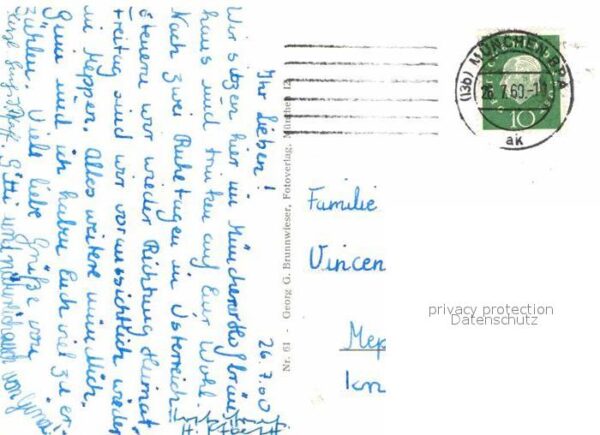 26.7.60
Ihr Lieben!
Wir sitzen hier im Münchner Hofbräu-
haus und trinken auf Euer Wohl.
Nach zwei Ruhetagen in Österreich
steuern wir wieder Richtung Heimat
Freitag sind wir voraussichtlich wieder
in Meppen. Alles weitere mündlich.
Günn und ich haben Euch viel zu er-
zählen. Viele liebe Grüße von
Gitti und natürlich auch von
Nr. 61 - Georg G. Brunnwieser, Fotoverlag, München 12
(13b) MÜNCHEN BPA
26.7.60.-11
ak
10
Familie
Vincen
Mep
privacy protection
Datenschutz